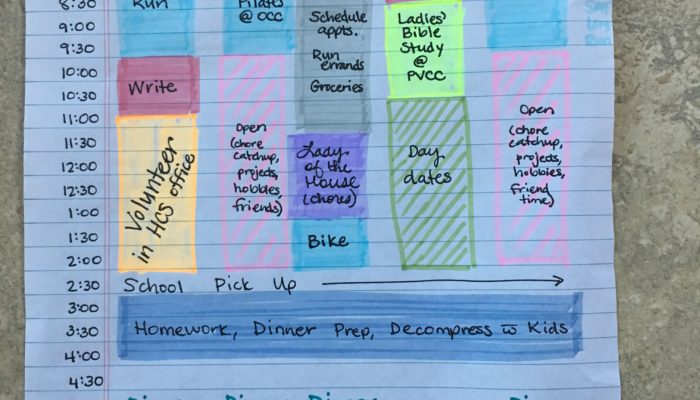 8:30
9:00
9:30
10:00
10:30
11:00
11:30
12:00
12:30
1:00
1:30
2:00
2:30
3:00
3:30
4:00
4:30
Run
Write
Volunteer
in HCS office
Pilates
@ OCC
Open
(chore
catchup,
projects,
hobbies,
friends)
Schedule
appts.
Run
errands
Groceries
Lady
of the
House
(chores)
Bike
Ladies'
Bible
Study
@
PVCC
Day
dates
Open
(chore
catchup,
projects,
hobbies,
friend
time)
School Pick Up
Homework, Dinner Prep, Decompress w̄ Kids